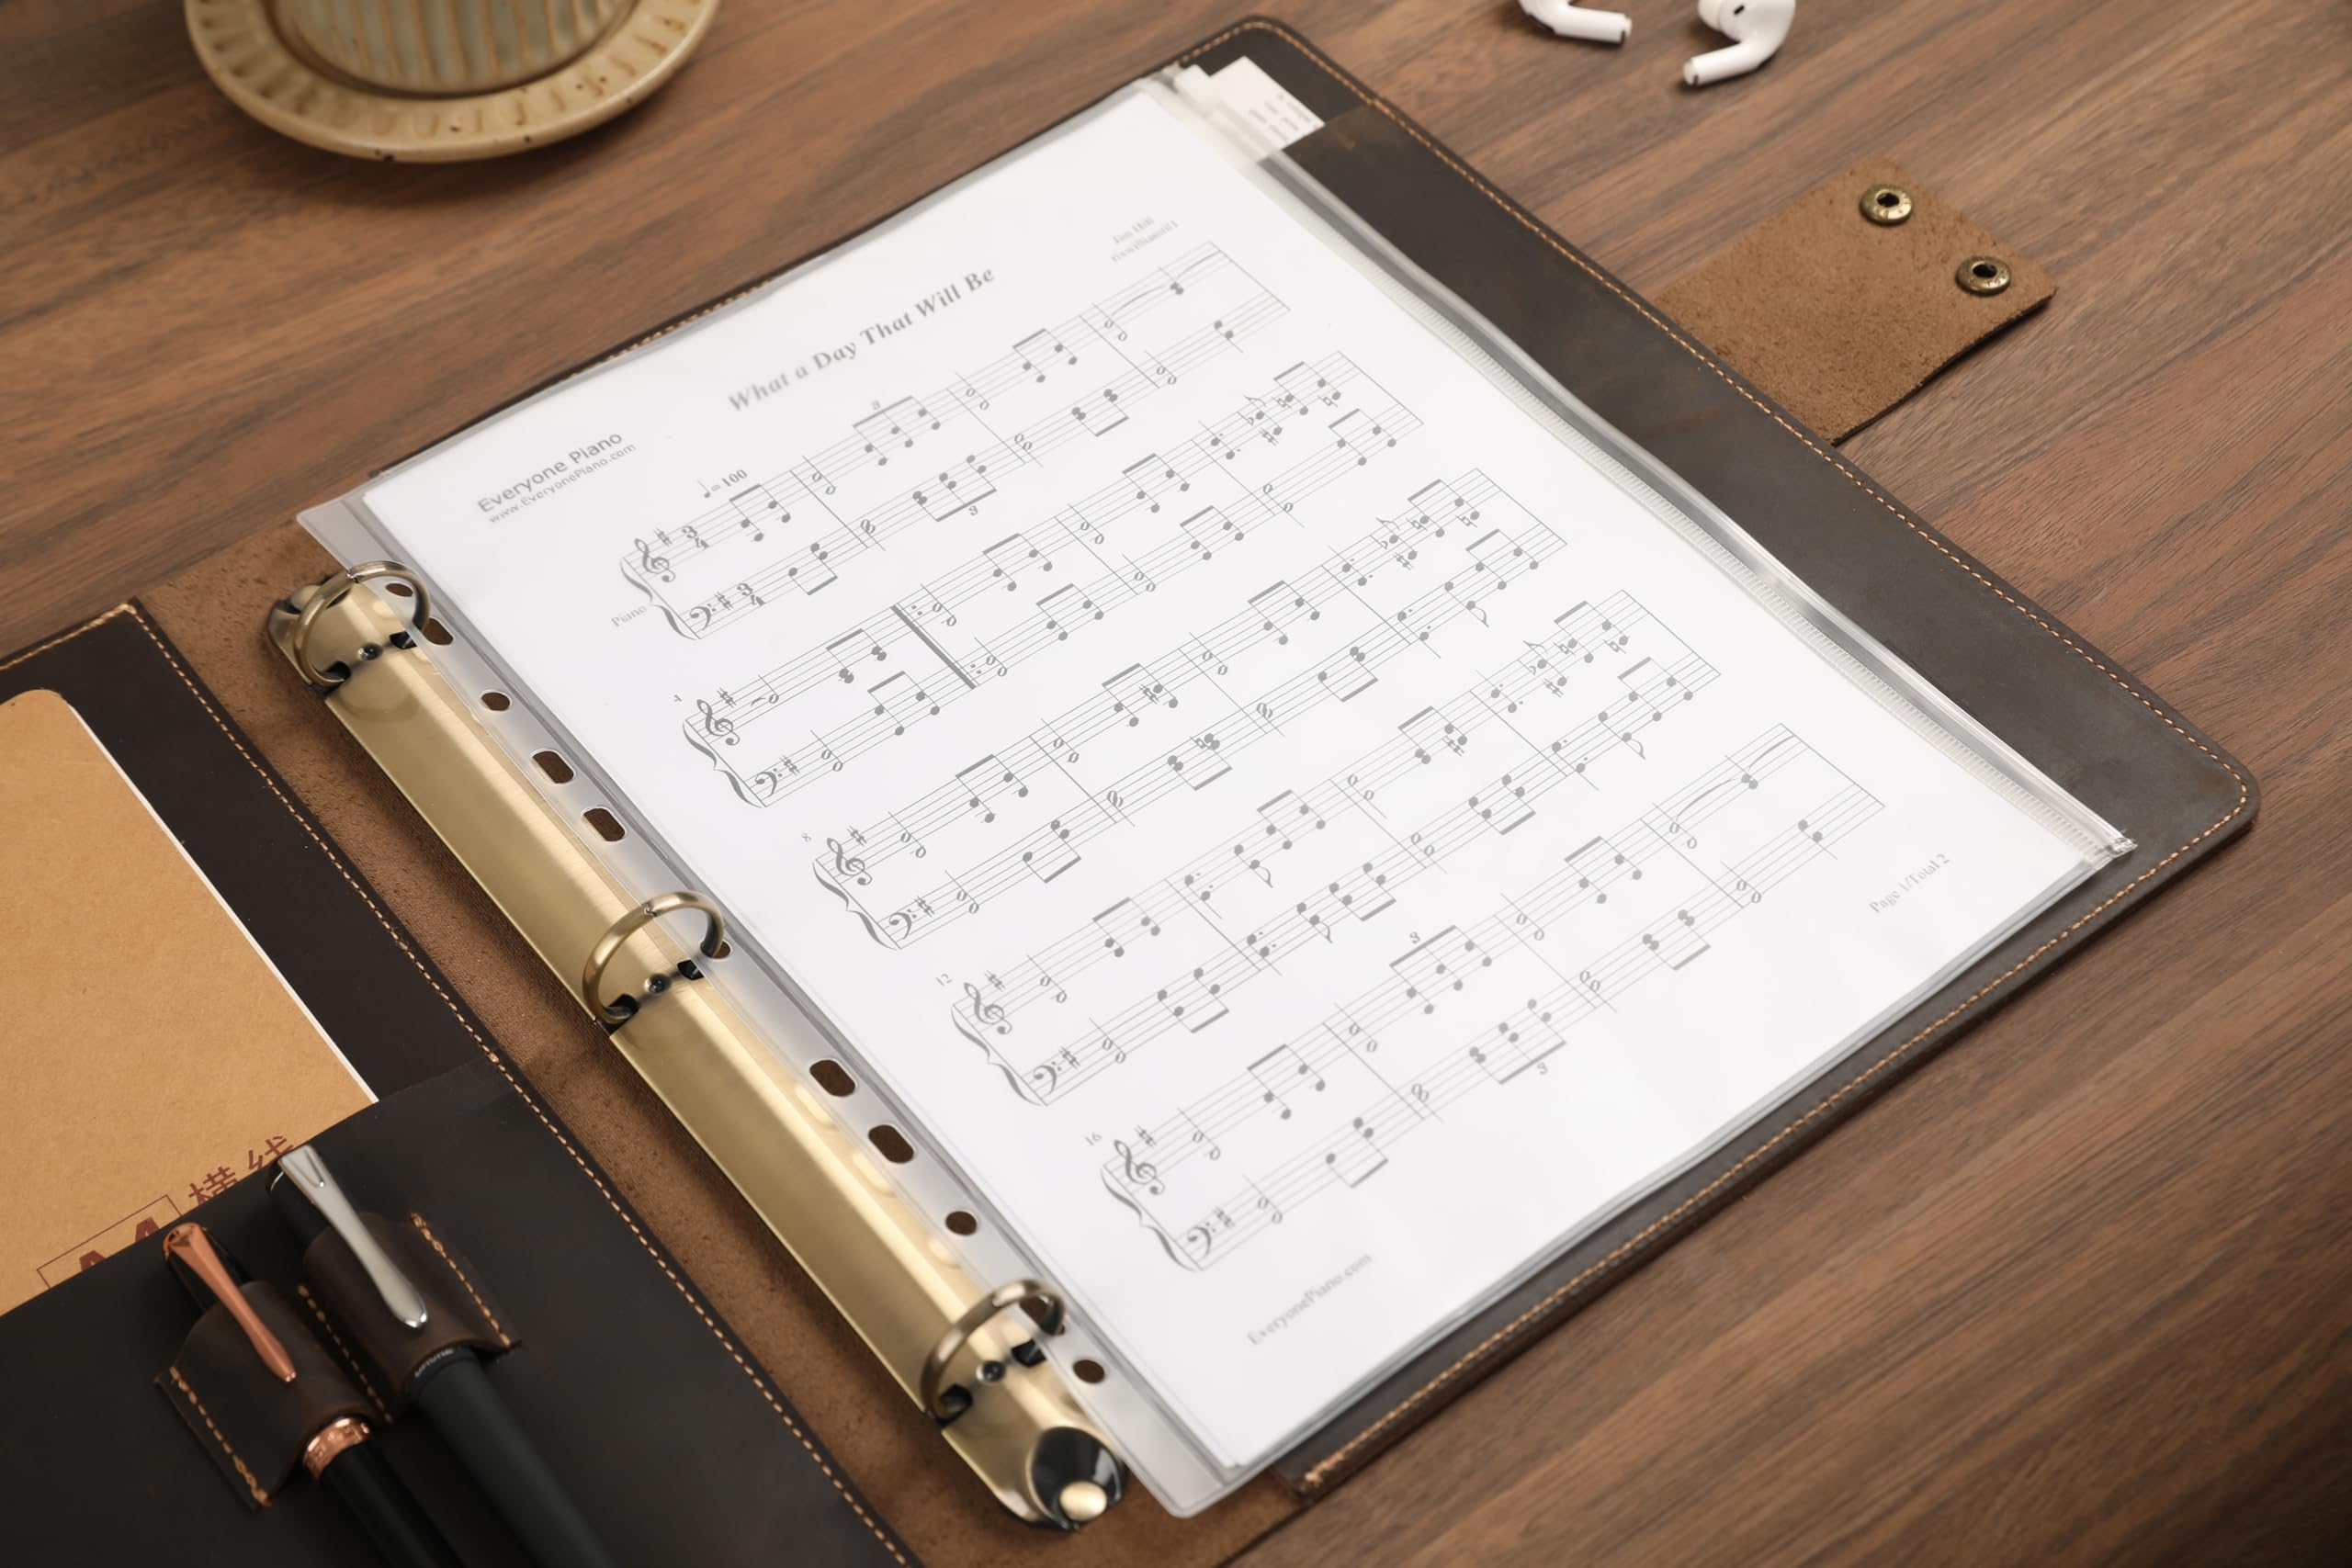 What a Day That Will Be
Everyone Piano
www.EveryonePiano.com
Jon Hill
= 100
3
Piano
3
4
3
4
3
4
8
12
3
16
3
EveryonePiano.com
Page 1/Total 2
横线